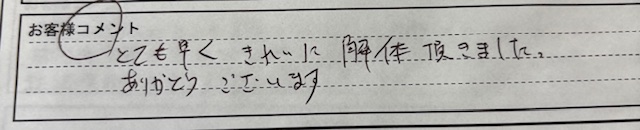 お客様コメント
とても早くきれいに解体頂きました。
ありがとうございます